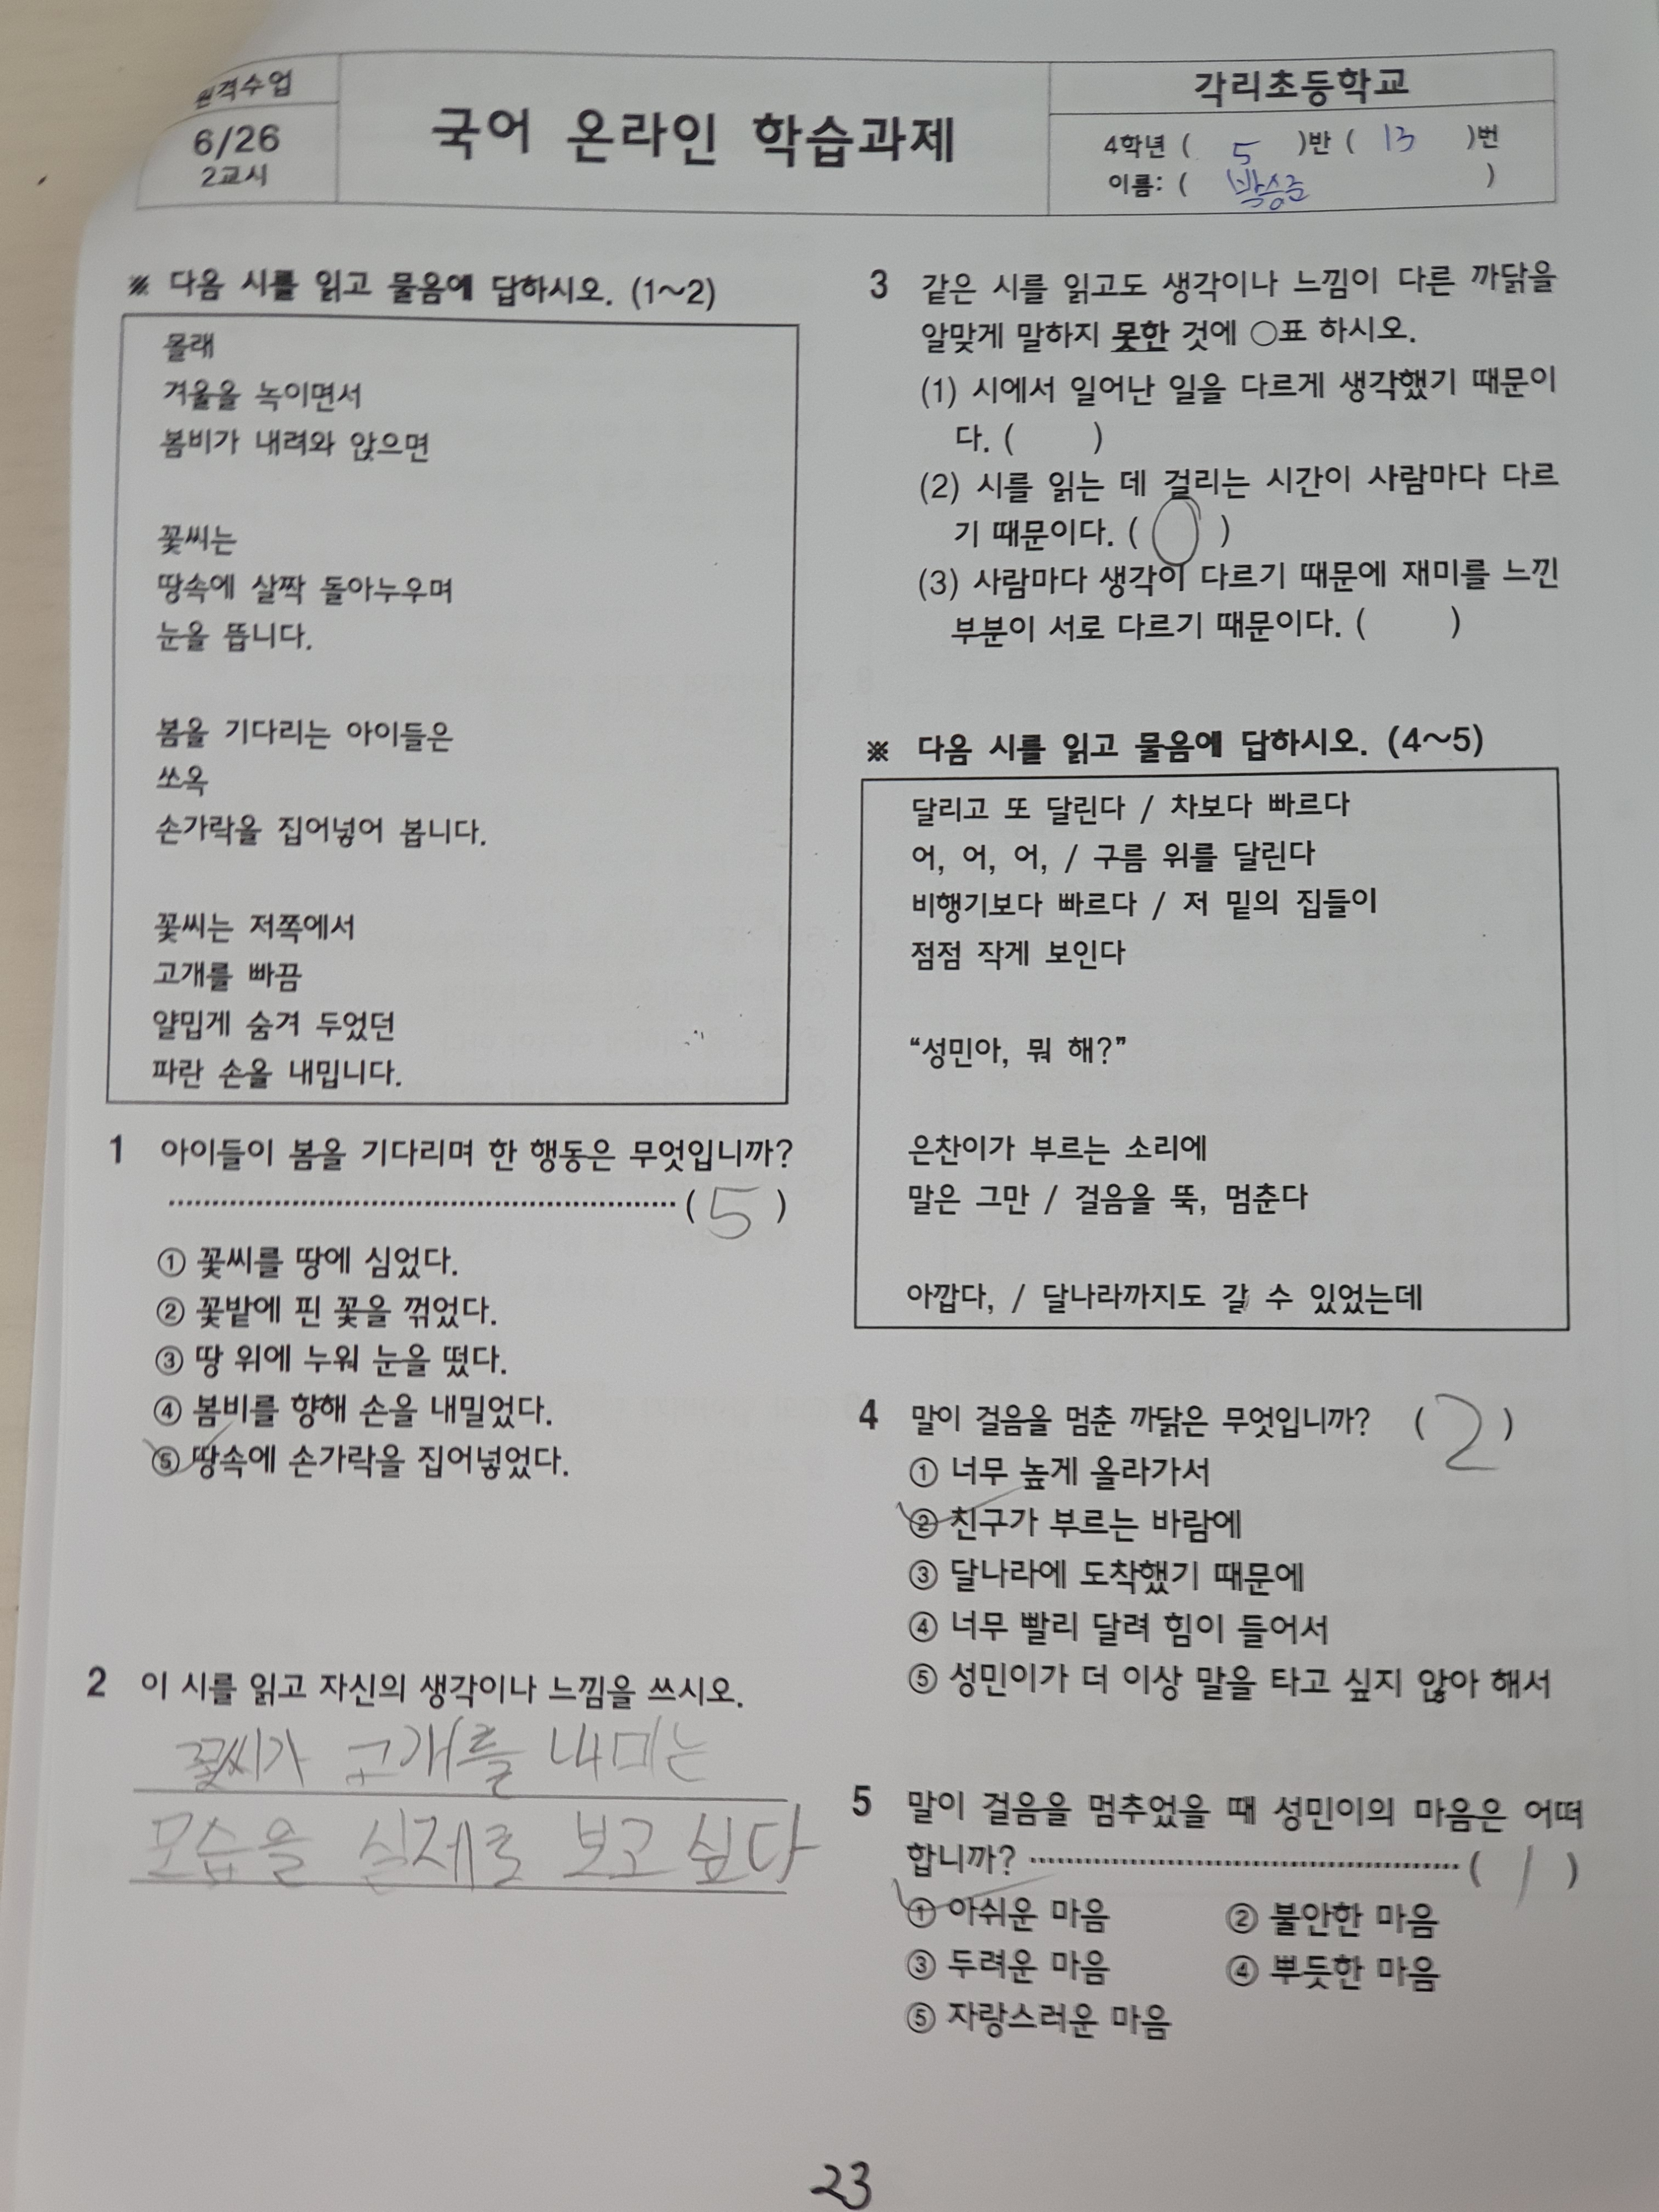 원격수업
6/26
2교시
국어 온라인 학습과제
각리초등학교
4학년 ( 5 )반 ( 13 )번
이름: ( 박승준 )
※ 다음 시를 읽고 물음에 답하시오. (1~2)
몰래
겨울을 녹이면서
봄비가 내려와 앉으면
꽃씨는
땅속에 살짝 돌아누우며
눈을 뜹니다.
봄을 기다리는 아이들은
쏘옥
손가락을 집어넣어 봅니다.
꽃씨는 저쪽에서
고개를 빠끔
얄밉게 숨겨 두었던
파란 손을 내밉니다.
1 아이들이 봄을 기다리며 한 행동은 무엇입니까?
( 5 )
① 꽃씨를 땅에 심었다.
② 꽃밭에 핀 꽃을 꺾었다.
③ 땅 위에 누워 눈을 떴다.
④ 봄비를 향해 손을 내밀었다.
⑤ 땅속에 손가락을 집어넣었다.
2 이 시를 읽고 자신의 생각이나 느낌을 쓰시오.
꽃씨가 고개를 내미는
모습을 실제로 보고 싶다
3 같은 시를 읽고도 생각이나 느낌이 다른 까닭을
알맞게 말하지 못한 것에 ○표 하시오.
(1) 시에서 일어난 일을 다르게 생각했기 때문이
다. ( )
(2) 시를 읽는 데 걸리는 시간이 사람마다 다르
기 때문이다. ( ○ )
(3) 사람마다 생각이 다르기 때문에 재미를 느낀
부분이 서로 다르기 때문이다. ( )
※ 다음 시를 읽고 물음에 답하시오. (4~5)
달리고 또 달린다 / 차보다 빠르다
어, 어, 어, / 구름 위를 달린다
비행기보다 빠르다 / 저 밑의 집들이
점점 작게 보인다
“성민아, 뭐 해?”
은찬이가 부르는 소리에
말은 그만 / 걸음을 뚝, 멈춘다
아깝다, / 달나라까지도 갈 수 있었는데
4 말이 걸음을 멈춘 까닭은 무엇입니까? ( 2 )
① 너무 높게 올라가서
② 친구가 부르는 바람에
③ 달나라에 도착했기 때문에
④ 너무 빨리 달려 힘이 들어서
⑤ 성민이가 더 이상 말을 타고 싶지 않아 해서
5 말이 걸음을 멈추었을 때 성민이의 마음은 어떠
합니까? ( 1 )
① 아쉬운 마음 ② 불안한 마음
③ 두려운 마음 ④ 뿌듯한 마음
⑤ 자랑스러운 마음
23